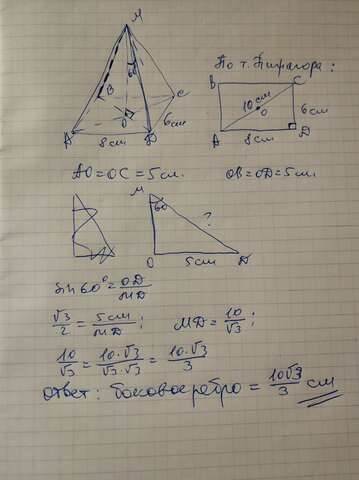 M
60
B
C
O
A
D
8см
6см
По т. Пифагора:
B
C
10см
O
6см
A
D
8см
AO=OC=5см.
OB=OD=5см
M
60
?
O
5см
D
sin60°=OD/MD
√3/2=5см/MD;
MD=10/√3;
10/√3=10·√3/√3·√3=10·√3/3
Ответ: боковое ребро=10√3/3 см